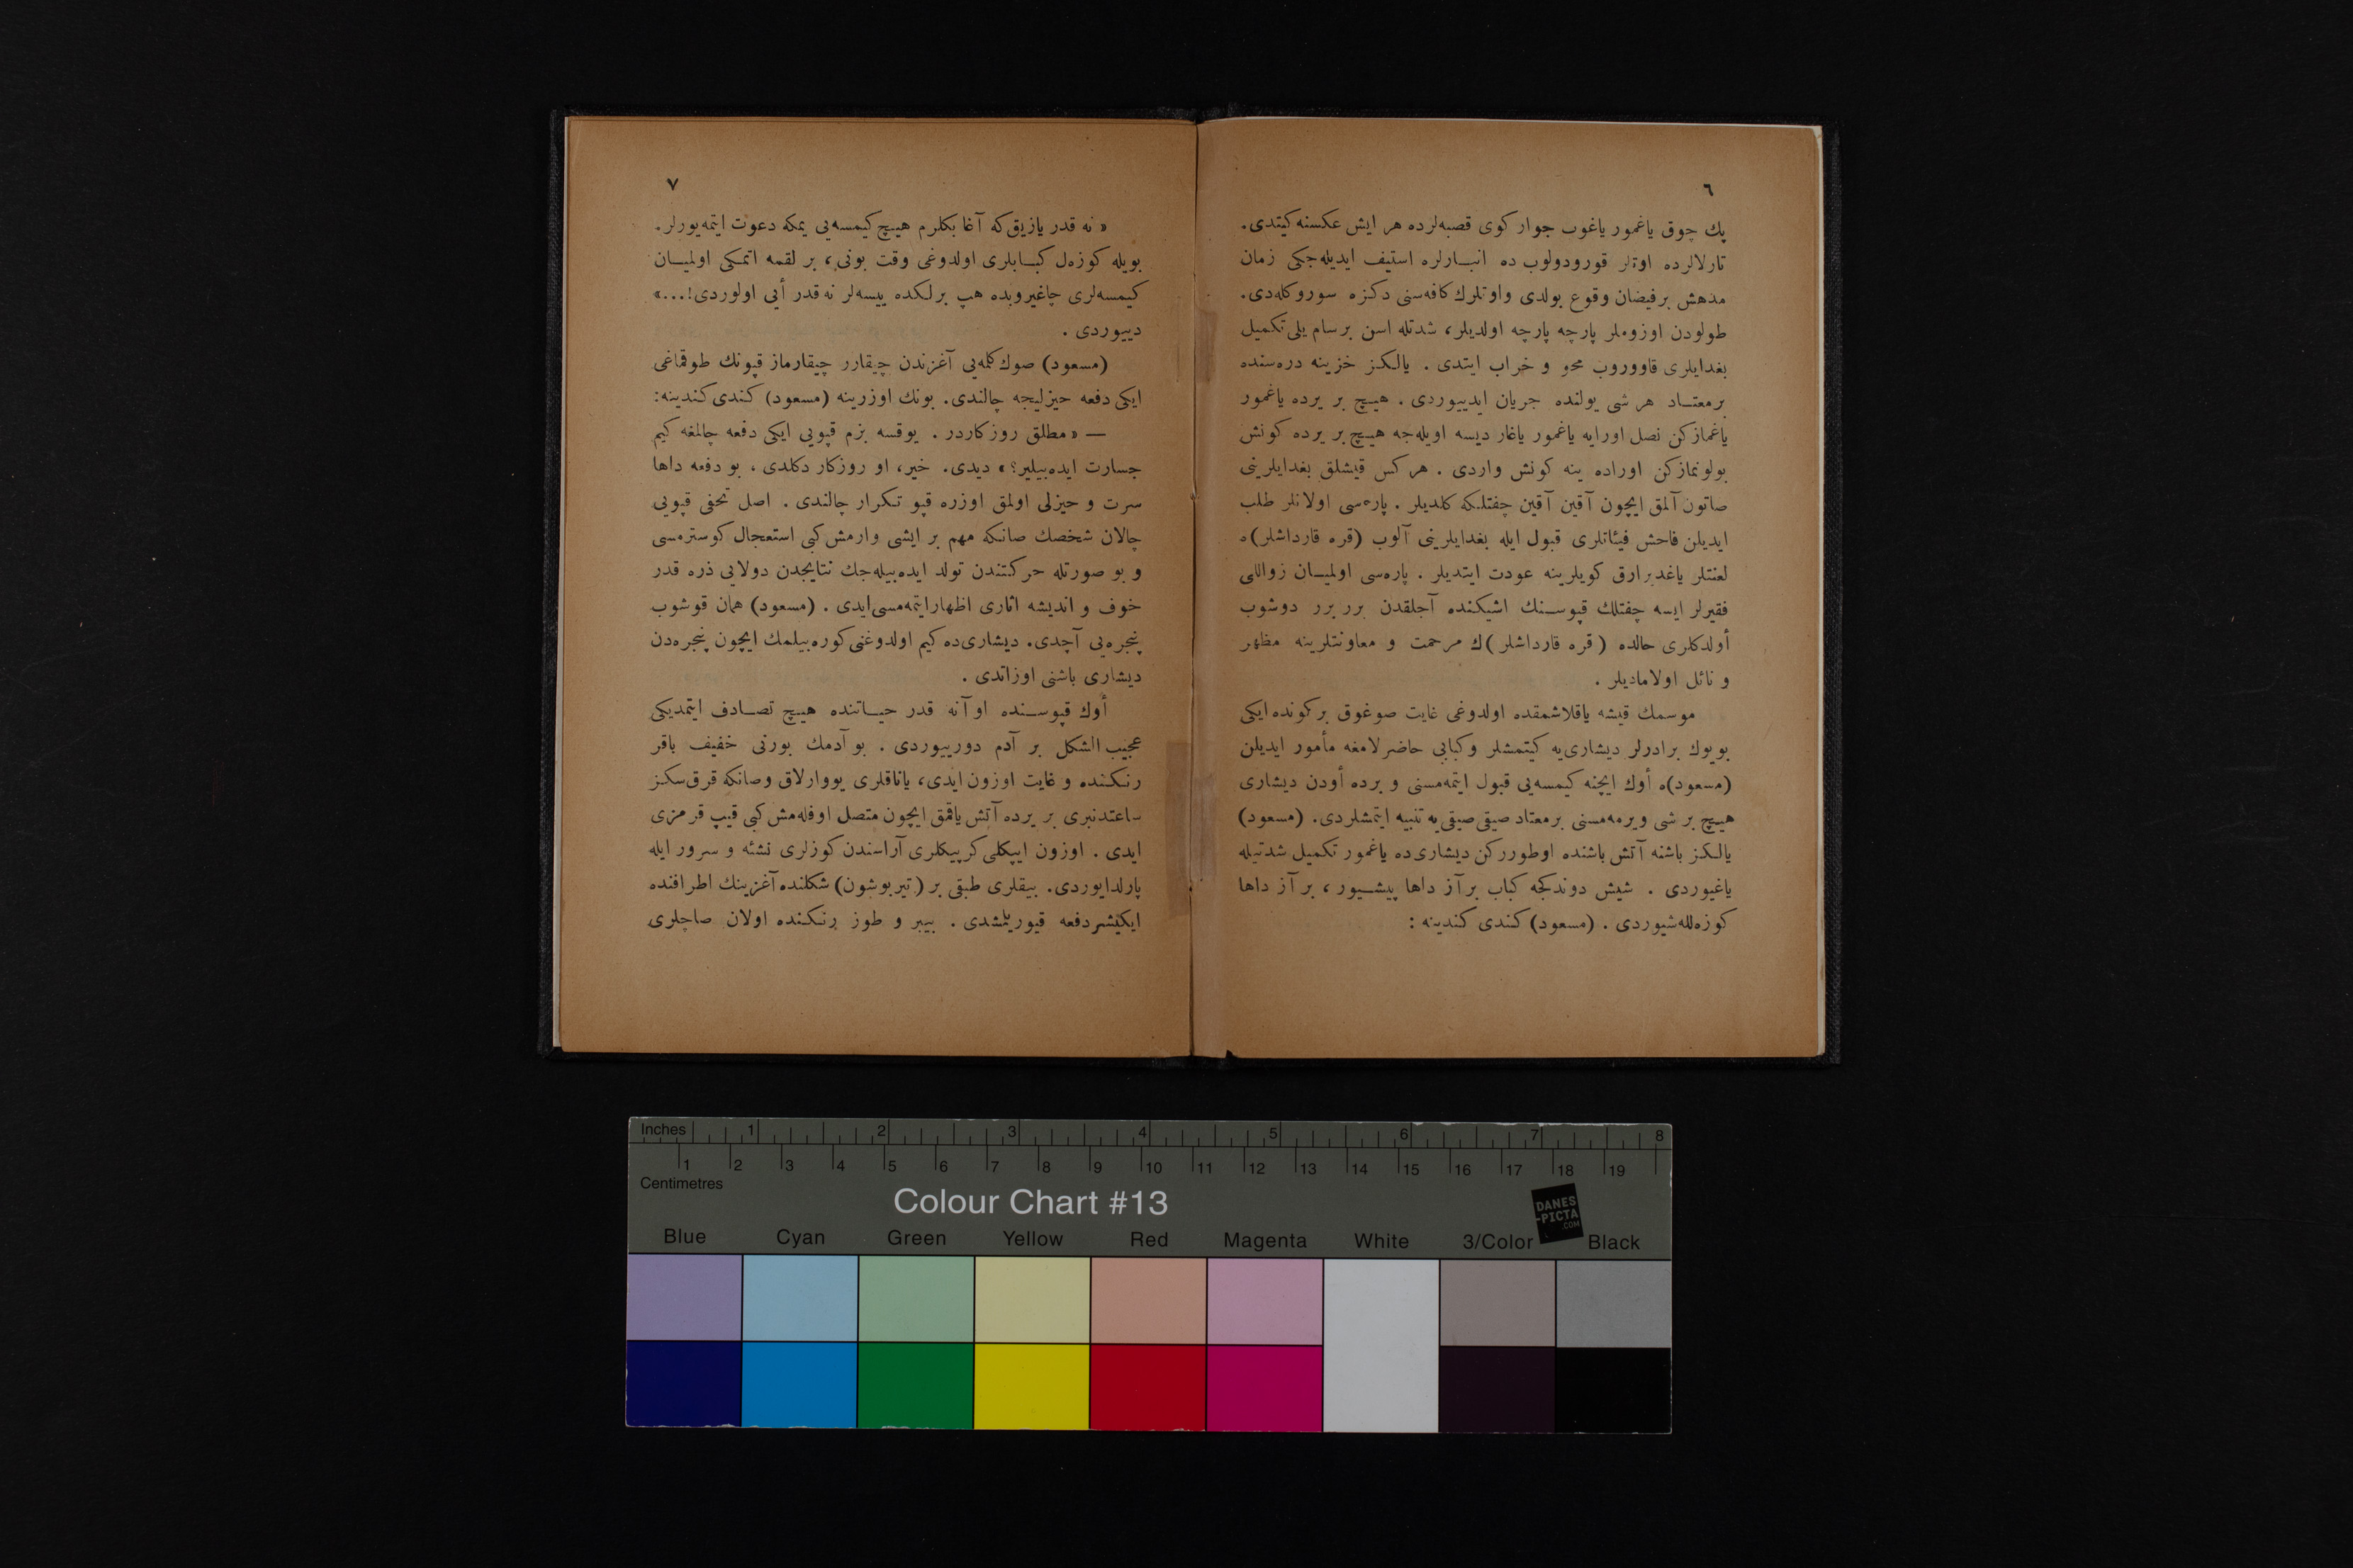 ٦
پك چوق ياغمور ياغوب جوار كوی قصبه‌لرده هر ايش عكسنه كيتدی.
تارلالرده اوتلر قورودولوب ده انبــارلره استيف ايديله‌جكی زمان
مدهش برفيضان وقوع بولدی واوتلرك كافه‌سنی دكزه سوروكله‌دی.
طولودن اوزوملر پارچه پارچه اولديلر، شدتله اسن برسام يلی تكميل
بغدايلری قاووروب محو و خراب ايتدی . يالكز خزينه دره‌سنده
برمعتــاد هر شی يولنده جريان ايدييوردی . هيچ بر يرده ياغمور
ياغمازكن نصل اورايه ياغمور ياغار ديسه اويله‌جه هيچ بر يرده كونش
بولونمازكن اوراده ينه كونش واردی . هركس قيشلق بغدايلرينی
صاتون آلمق ايچون آقين آقين چفتلكه كلديلر . پاره‌سی اولانلر طلب
ايديلن فاحش فيئاتلری قبول ايله بغدايلرينی آلوب (قره قارداشلر)ه
لعنتلر ياغديرارق كويلرينه عودت ايتديلر . پاره‌سی اولميــان زواللی
فقيرلر ايسه چفتلك قپوســنك اشيكنده آجلقدن برر برر دوشوب
أولدكلری حالده (قره قارداشلر)ك مرحمت و معاونتلرينه مظهر
و نائل اولاماديلر .
موسمك قيشه ياقلاشمقده اولدوغی غايت صوغوق بركونده ايكی
بويوك برادرلر ديشاری‌يه كيتمشلر وكبابی حاضرلامغه مأمور ايديلن
(مسعود)ه أوك ايچنه كيمسه‌یی قبول ايتمه‌مسنی و برده أودن ديشاری
هيچ بر شی ويرمه‌مسنی برمعتاد صيقی صيقی‌يه تنبيه ايتمشلردی. (مسعود)
يالكز باشنه آتش باشنده اوطورركن ديشاری‌ده ياغمور تكميل شدتيله
ياغيوردی . شيش دوندكجه كباب برآز داها پيشــيور، برآز داها
كوزه‌لله‌شيوردی . (مسعود) كندی كندينه :
٧
« نه قدر يازيق كه آغا بكلرم هيچ كيمسه‌یی يمكه دعوت ايتمه‌يورلر.
بويله كوزه‌ل كبــابلری اولدوغی وقت بونی، بر لقمه اتمكی اولميــان
كيمسه‌لری چاغيروبده هپ برلكده ييسه‌لر نه قدر أیی اولوردی!...»
دييوردی .
(مسعود) صوك كلمه‌یی آغزندن چيقارر چيقارماز قپونك طوقماغی
ايكی دفعه حيزليجه چالندی. بونك اوزرينه (مسعود) كندی كندينه:
— « مطلق روزكاردر . يوقسه بزم قپویی ايكی دفعه چالمغه كيم
جسارت ايده‌بيلير؟ » ديدی. خير، او روزكار دكلدی . بو دفعه داها
سرت و حيزلی اولمق اوزره قپو تكرار چالندی . اصل تحفی قپویی
چالان شخصك صانكه مهم بر ايشی وارمش كبی استعجال كوسترمسی
و بو صورتله حركتندن تولد ايده‌بيله‌جك نتايجدن دولایی ذره قدر
خوف و انديشه اثاری اظهارايتمه‌مسی ايدی . (مسعود) همان قوشوب
پنجره‌یی آچدی. ديشاری‌ده كيم اولدوغنی كوره‌بيلمك ايچون پنجره‌دن
ديشاری باشنی اوزاتدی .
أوك قپوســنده او آنه قدر حيــاتنده هيچ تصــادف ايتمديكی
عجيب الشكل بر آدم دورييوردی . بو آدمك بورنی خفيف باقر
رنكنده و غايت اوزون ايدی، ياناقلری يووارلاق وصانكه قرق‌سكز
ساعتدنبری بر يرده آتش ياقمق ايچون متصل اوفله‌مش كبی قيپ قرمزی
ايدی . اوزون ايپكلی كرپيكلری آراسندن كوزلری نشئه و سرور ايله
پارلدايوردی. بيقلری طبقی بر (تيربوشون) شكلنده آغزينك اطرافنده
ايكيشر دفعه قيوريلمشدی . بيبر و طوز رنكنده اولان صاچلری
Inches 1 2 3 4 5 6 7 8
1 2 3 4 5 6 7 8 9 10 11 12 13 14 15 16 17 18 19
Centimetres
Colour Chart #13
DANES
-PICTA
.COM
Blue Cyan Green Yellow Red Magenta White 3/Color Black